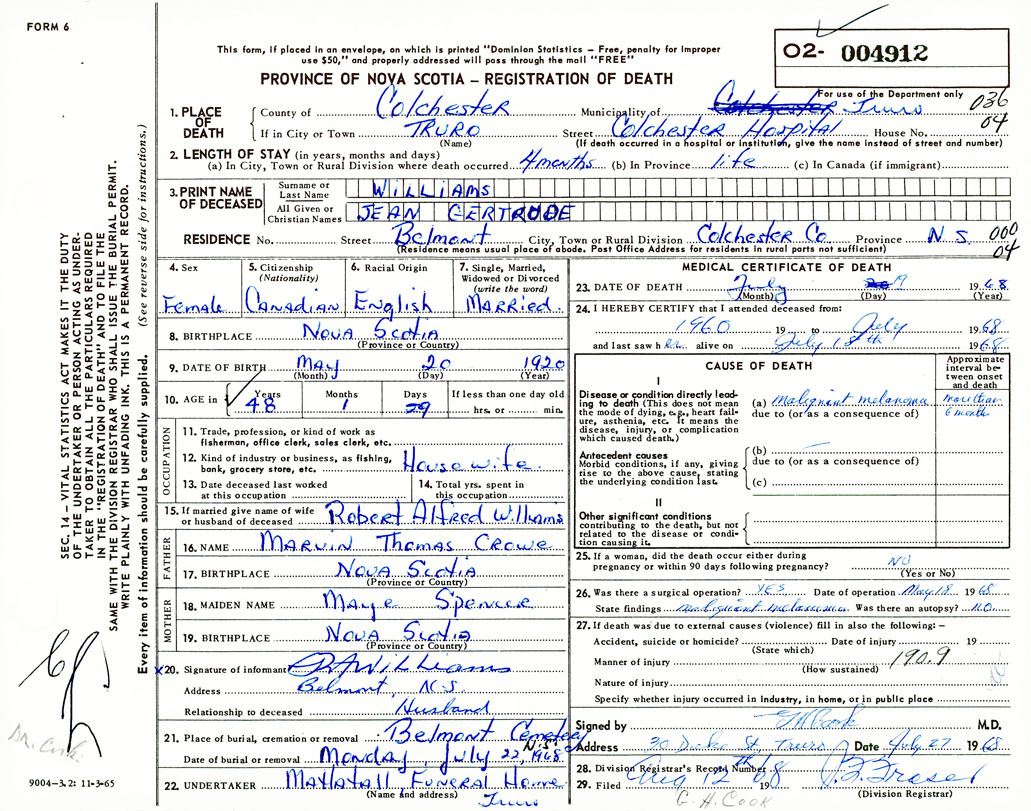 FORM 6
This form, if placed in an envelope, on which is printed "Dominion Statistics – Free, penalty for improper
use $50," and properly addressed will pass through the mail "FREE"
O2- 004912
PROVINCE OF NOVA SCOTIA – REGISTRATION OF DEATH
For use of the Department only
1. PLACE OF DEATH
County of Colchester Municipality of Colchester Truro 036
If in City or Town TRURO Street Colchester Hospital House No. 04
(Name) (If death occurred in a hospital or institution, give the name instead of street and number)
2. LENGTH OF STAY (in years, months and days)
(a) In City, Town or Rural Division where death occurred 4 months (b) In Province life (c) In Canada (if immigrant)
3. PRINT NAME OF DECEASED
Surname or Last Name WILLIAMS
All Given or Christian Names JEAN GERTRUDE
RESIDENCE No. Street Belmont City, Town or Rural Division Colchester Co. Province N S. 000
(Residence means usual place of abode. Post Office Address for residents in rural parts not sufficient) 04
4. Sex Female
5. Citizenship (Nationality) Canadian
6. Racial Origin English
7. Single, Married, Widowed or Divorced (write the word) Married.
8. BIRTHPLACE Nova Scotia
(Province or Country)
9. DATE OF BIRTH May 20 1920
(Month) (Day) (Year)
10. AGE in Years 48 Months 1 Days 29 If less than one day old
hrs. or min.
OCCUPATION
11. Trade, profession, or kind of work as
fisherman, office clerk, sales clerk, etc.
12. Kind of industry or business, as fishing,
bank, grocery store, etc. Housewife.
13. Date deceased last worked
at this occupation
14. Total yrs. spent in
this occupation
15. If married give name of wife
or husband of deceased Robert Alfred Williams
FATHER
16. NAME Marvin Thomas Crowe
17. BIRTHPLACE Nova Scotia
(Province or Country)
MOTHER
18. MAIDEN NAME Maye Spencer
19. BIRTHPLACE Nova Scotia
(Province or Country)
x20. Signature of informant R A Williams
Address Belmont, N.S
Relationship to deceased Husband
21. Place of burial, cremation or removal Belmont Cemetery
N.S.
Date of burial or removal Monday, July 22, 1968
22. UNDERTAKER Mattatall Funeral Home
(Name and address) Truro
MEDICAL CERTIFICATE OF DEATH
23. DATE OF DEATH July 19 1968
(Month) (Day) (Year)
24. I HEREBY CERTIFY that I attended deceased from:
1960 19 to July 1968
and last saw her alive on July 18th 1968
CAUSE OF DEATH
Approximate interval between onset and death
I
Disease or condition directly leading to death (This does not mean
the mode of dying, e.g., heart failure, asthenia, etc. It means the
disease, injury, or complication
which caused death.)
(a) Malignant melanoma more than
due to (or as a consequence of) 6 month
Antecedent causes
Morbid conditions, if any, giving
rise to the above cause, stating
the underlying condition last.
(b)
due to (or as a consequence of)
(c)
II
Other significant conditions
contributing to the death, but not
related to the disease or condition causing it.
25. If a woman, did the death occur either during
pregnancy or within 90 days following pregnancy? NO
(Yes or No)
26. Was there a surgical operation? YES Date of operation May 18 1968
State findings malignant melanoma Was there an autopsy? NO
27. If death was due to external causes (violence) fill in also the following: –
Accident, suicide or homicide? Date of injury 19
(State which)
Manner of injury 190.9
(How sustained)
Nature of injury
Specify whether injury occurred in Industry, in home, or in public place
Signed by Cook M.D.
Address St, Truro Date July 27 1968
28. Division Registrar's Record Number
29. Filed Aug 12th 1968
Fraser
(Division Registrar)
G. H. COOK
SEC. 14 – VITAL STATISTICS ACT MAKES IT THE DUTY
OF THE UNDERTAKER OR PERSON ACTING AS UNDER-
TAKER TO OBTAIN ALL THE PARTICULARS REQUIRED
IN THE "REGISTRATION OF DEATH" AND TO FILE THE
SAME WITH THE DIVISION REGISTRAR WHO SHALL ISSUE THE BURIAL PERMIT.
WRITE PLAINLY WITH UNFADING INK. THIS IS A PERMANENT RECORD.
Every item of information should be carefully supplied. (See reverse side for instructions.)
DR. Cook.
9004-3.2: 11-3-65